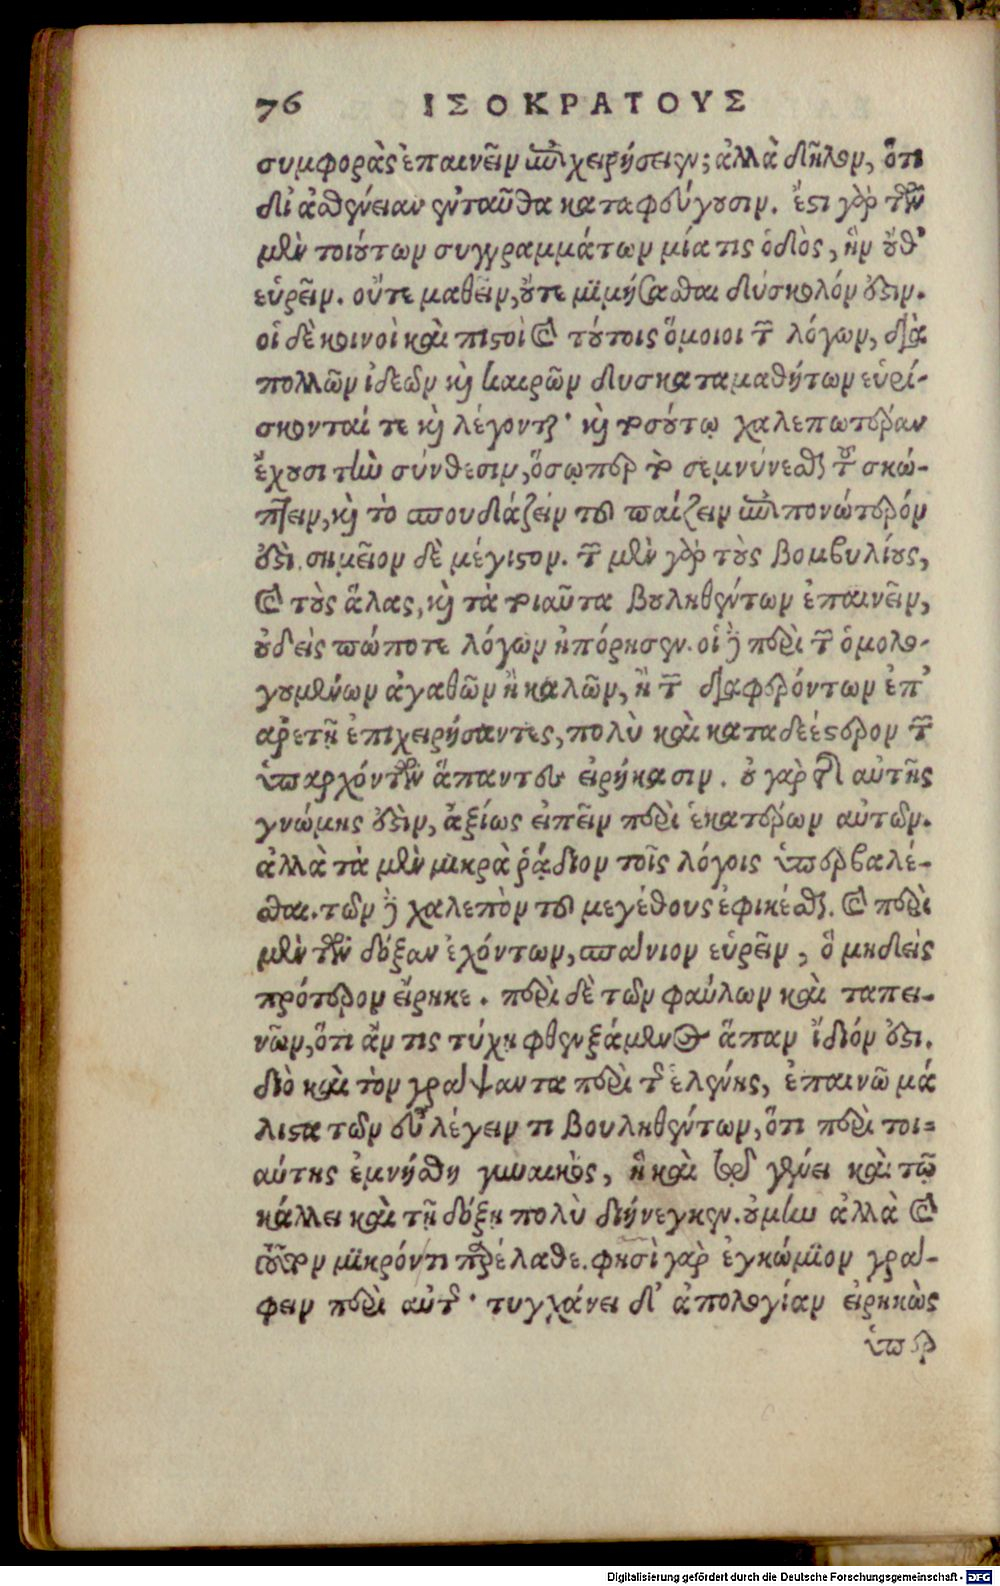 76 ΙΣΟΚΡΑΤΟΥΣ
συμφορὰς ἐπαινεῖν ἐπιχειρήσειεν; ἀλλὰ δῆλον, ὅτι
δι' ἀσθένειαν ἐνταῦθα καταφεύγουσιν. ἔστι γὰρ τῶν
μὲν τοιούτων συγγραμμάτων μία τις ὁδὸς, ἣν οὔθ'
εὑρεῖν. οὔτε μαθεῖν, οὔτε μιμήσασθαι δύσκολόν ἐστιν.
οἱ δὲ κοινοὶ καὶ πιστοὶ καὶ τούτοις ὅμοιοι τῶν λόγων, διὰ
πολλῶν ἰδεῶν καὶ καιρῶν δυσκαταμαθήτων εὑρί-
σκονταί τε καὶ λέγονται· καὶ τοσούτῳ χαλεπωτέραν
ἔχουσι τὴν σύνθεσιν, ὅσῳπερ τὸ σεμνύνεσθαι τοῦ σκώ-
πτειν, καὶ τὸ σπουδάζειν τοῦ παίζειν ἐπιπονώτερόν
ἐστι. σημεῖον δὲ μέγιστον. τῶν μὲν γὰρ τοὺς βομβυλίους,
καὶ τοὺς ἅλας, καὶ τὰ τοιαῦτα βουληθέντων ἐπαινεῖν,
οὐδεὶς πώποτε λόγων ἠπόρησεν. οἱ δὲ περὶ τῶν ὁμολο-
γουμένων ἀγαθῶν ἢ καλῶν, ἢ τῶν διαφερόντων ἐπ'
ἀρετῇ ἐπιχειρήσαντες, πολὺ καὶ καταδεέστερον τῶν
ὑπαρχόντων ἅπαντες εἰρήκασιν. οὐ γὰρ τῆς αὐτῆς
γνώμης ἐστὶν, ἀξίως εἰπεῖν περὶ ἑκατέρων αὐτῶν.
ἀλλὰ τὰ μὲν μικρὰ ῥᾴδιον τοῖς λόγοις ὑπερβαλέ-
σθαι. τῶν δὲ χαλεπὸν τοῦ μεγέθους ἐφικέσθαι. καὶ περὶ
μὲν τῶν δόξαν ἐχόντων, σπάνιον εὑρεῖν, ὃ μηδεὶς
πρότερον εἴρηκε. περὶ δὲ τῶν φαύλων καὶ ταπει-
νῶν, ὅτι ἄν τις τύχῃ φθεγξάμενος ἅπαν ἴδιόν ἐστι.
διὸ καὶ τὸν γράψαντα περὶ τῆς ἑλένης, ἐπαινῶ μά
λιστα τῶν εὖ λέγειν τι βουληθέντων, ὅτι περὶ τοι-
αύτης ἐμνήσθη γυναικὸς, ἣ καὶ τῷ γένει καὶ τῷ
κάλλει καὶ τῇ δόξῃ πολὺ διήνεγκεν. οὐ μὴν ἀλλὰ καὶ
τοῦτον μικρόν τι παρέλαθε. φησὶ γὰρ ἐγκώμιον γρά-
φειν περὶ αὐτῆς· τυγχάνει δ' ἀπολογίαν εἰρηκὼς
ὑπὲρ
Digitalisierung gefördert durch die Deutsche Forschungsgemeinschaft - DFG